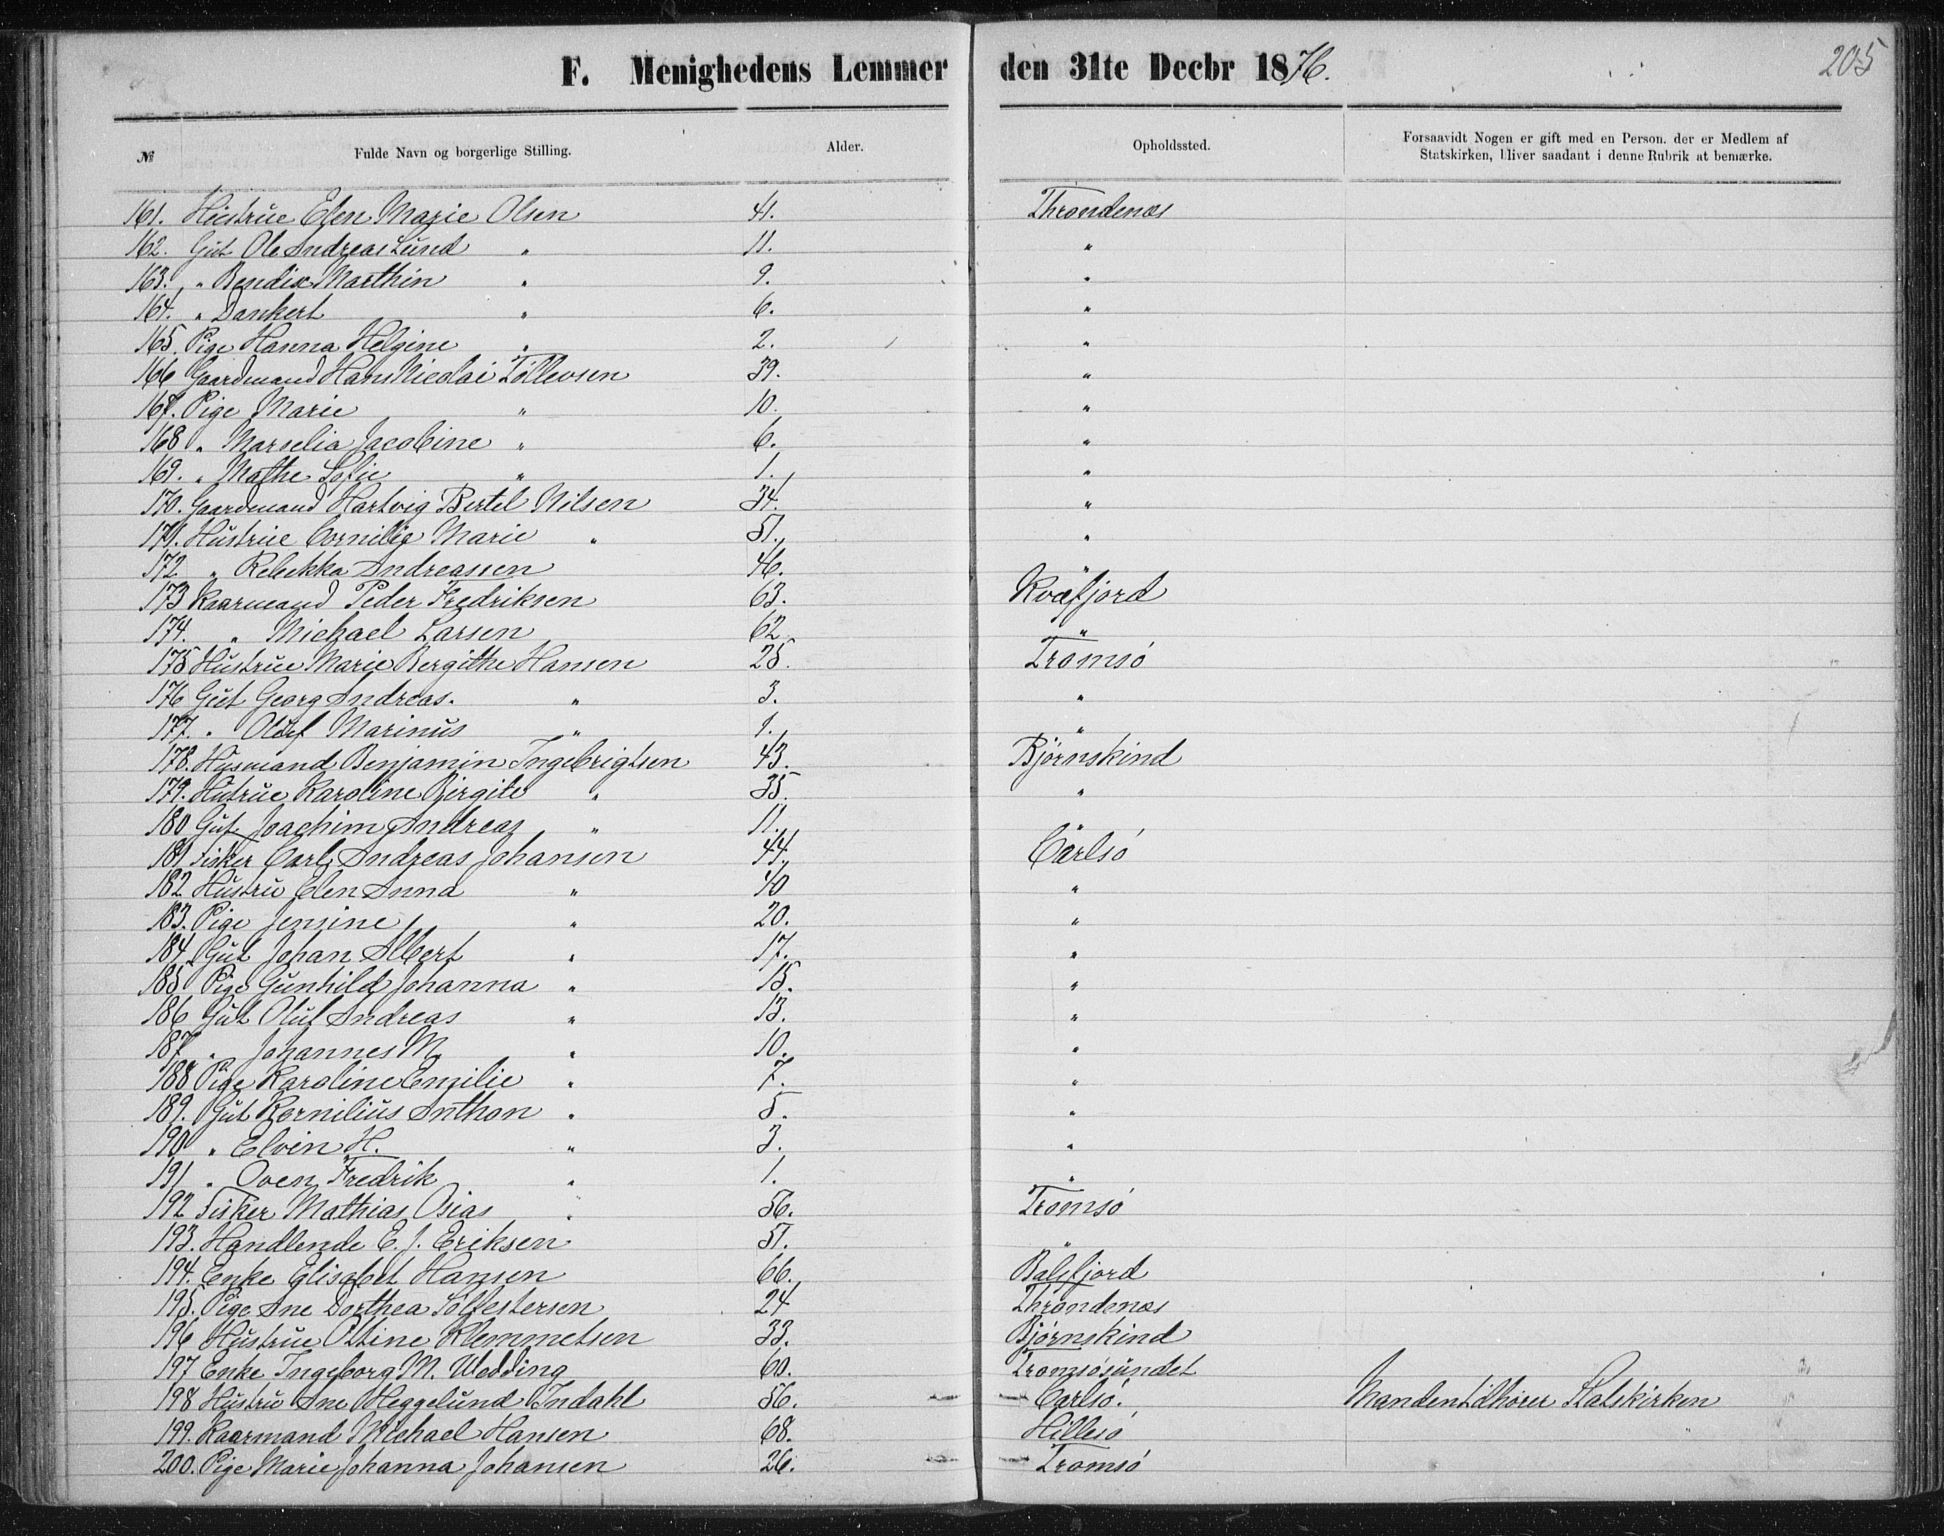 F. Menighedens Lemmer den 31te Decbr 1876. 205
№ Fulde Navn og borgerlige Stilling. Alder. Opholdssted. Forsaavidt Nogen er gift med en Person. der er Medlem af
Statskirken, bliver saadant i denne Rubrik at bemærke.
161. Hustrue Elen Marie Olsen 41. Throndenæs
162. Gut Ole Andreas Lund " 11. "
163. " Bendix Marthin " 9. "
164. " Dankert " 6. "
165. Pige Hanna Helgine " 2. "
166 Gaardmand Hans Nicolai Tøllevsen 39. "
167. Pige Marie " 10. "
168 " Marselia Jacobine " 6. "
169. " Mathe Sofie " 1. "
170. Gaardmand Hartvig Bertel Nilsen 34. "
171. Hustrue Cornilie Marie " 51. "
172 " Rebekka Andreassen 46. "
173 Kaarmand Peder Fredriksen 63. Kvæfjord
174. " Michael Larsen 62. "
175 Hustrue Marie Bergithe Hansen 25. Tromsø
176 Gut Georg Andreas. " 3. "
177. " Oluf Marinus " 1. "
178. Husmand Benjamin Ingebrigtsen 43. Bjørnskind
179. Hutrue Karoline Birgite " 35. "
180 Gut Joachim Andreas " 11. "
181. Fisker Carl Andreas Johansen 44. Carlsø
182 Hustru Elen Anna " 40 "
183. Pige Jensine " 20. "
184. Gut Johan Albert " 17. "
185 Pige Gunhild Johanna " 15. "
186 Gut Oluf Andreas " 13. "
187 " Johannes M. " 10. "
188 Pige Karoline Emilie " 7. "
189. Gut Kornilius Anthon " 5. "
190 " Elvin H. " 3. "
191 " Oven Fredrik " 1. "
192 Fisker Mathias Osias " 56. Tromsø
193. Handlende E. J. Eriksen 51. "
194. Enke Elisabet Hansen 66. Balsfjord
195. Pige Ane Dorthea Sølfestersen 24 Throndenæs
196 Hustrue Oline Klemmetsen 33. Bjørnskind
197 Enke Ingeborg M. Wedding 60. Tromsøsundet
198 Hustru Ane Heggelund Indahl 56. Carlsø. Manden tilhører Statskirken
199. Kaarmand Michael Hansen 68. Hillesø
200. Pige Marie Johanna Johansen 26. Tromsø